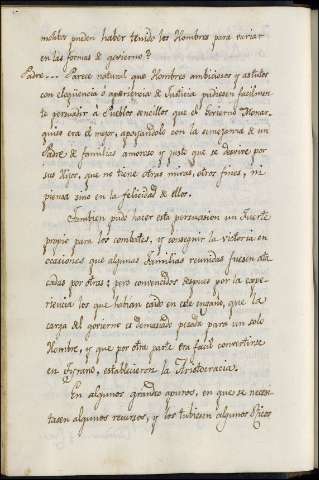 motivos pueden haber tenido los Hombres para variar
en las formas de govierno?
Padre.... Parece natural que Hombres ambiciosos y astutos
con eloqüencia ó apariencia de Justicia pudiesen facilmen-
te persuadir à Pueblos sencillos que el Govierno Monar-
quico era el mejor, apoyandolo con la semejanza de un
Padre de familias amoroso y justo que se desvive por
sus Hijos, que no tiene otras miras, otros fines, ni
piensa sino en la felicidad de ellos.
Tambien pudo hacer esta persuasion un Fuerte
propio para los combates, y conseguir la victoria en
ocasiones que algunas Familias reunidas fuesen ata-
cadas por otras: pero convencidos despues por la expe-
riencia los que habian caido en este engaño, que la
carga del govierno es demasiado pesada para un solo
Hombre, y que por otra parte era facil convertirse
en Tyrano, establecieron la Aristocracia.
En algunos grandes apuros, en que se necesi-
tasen algunos recursos, y los tubiesen algunos Ricos